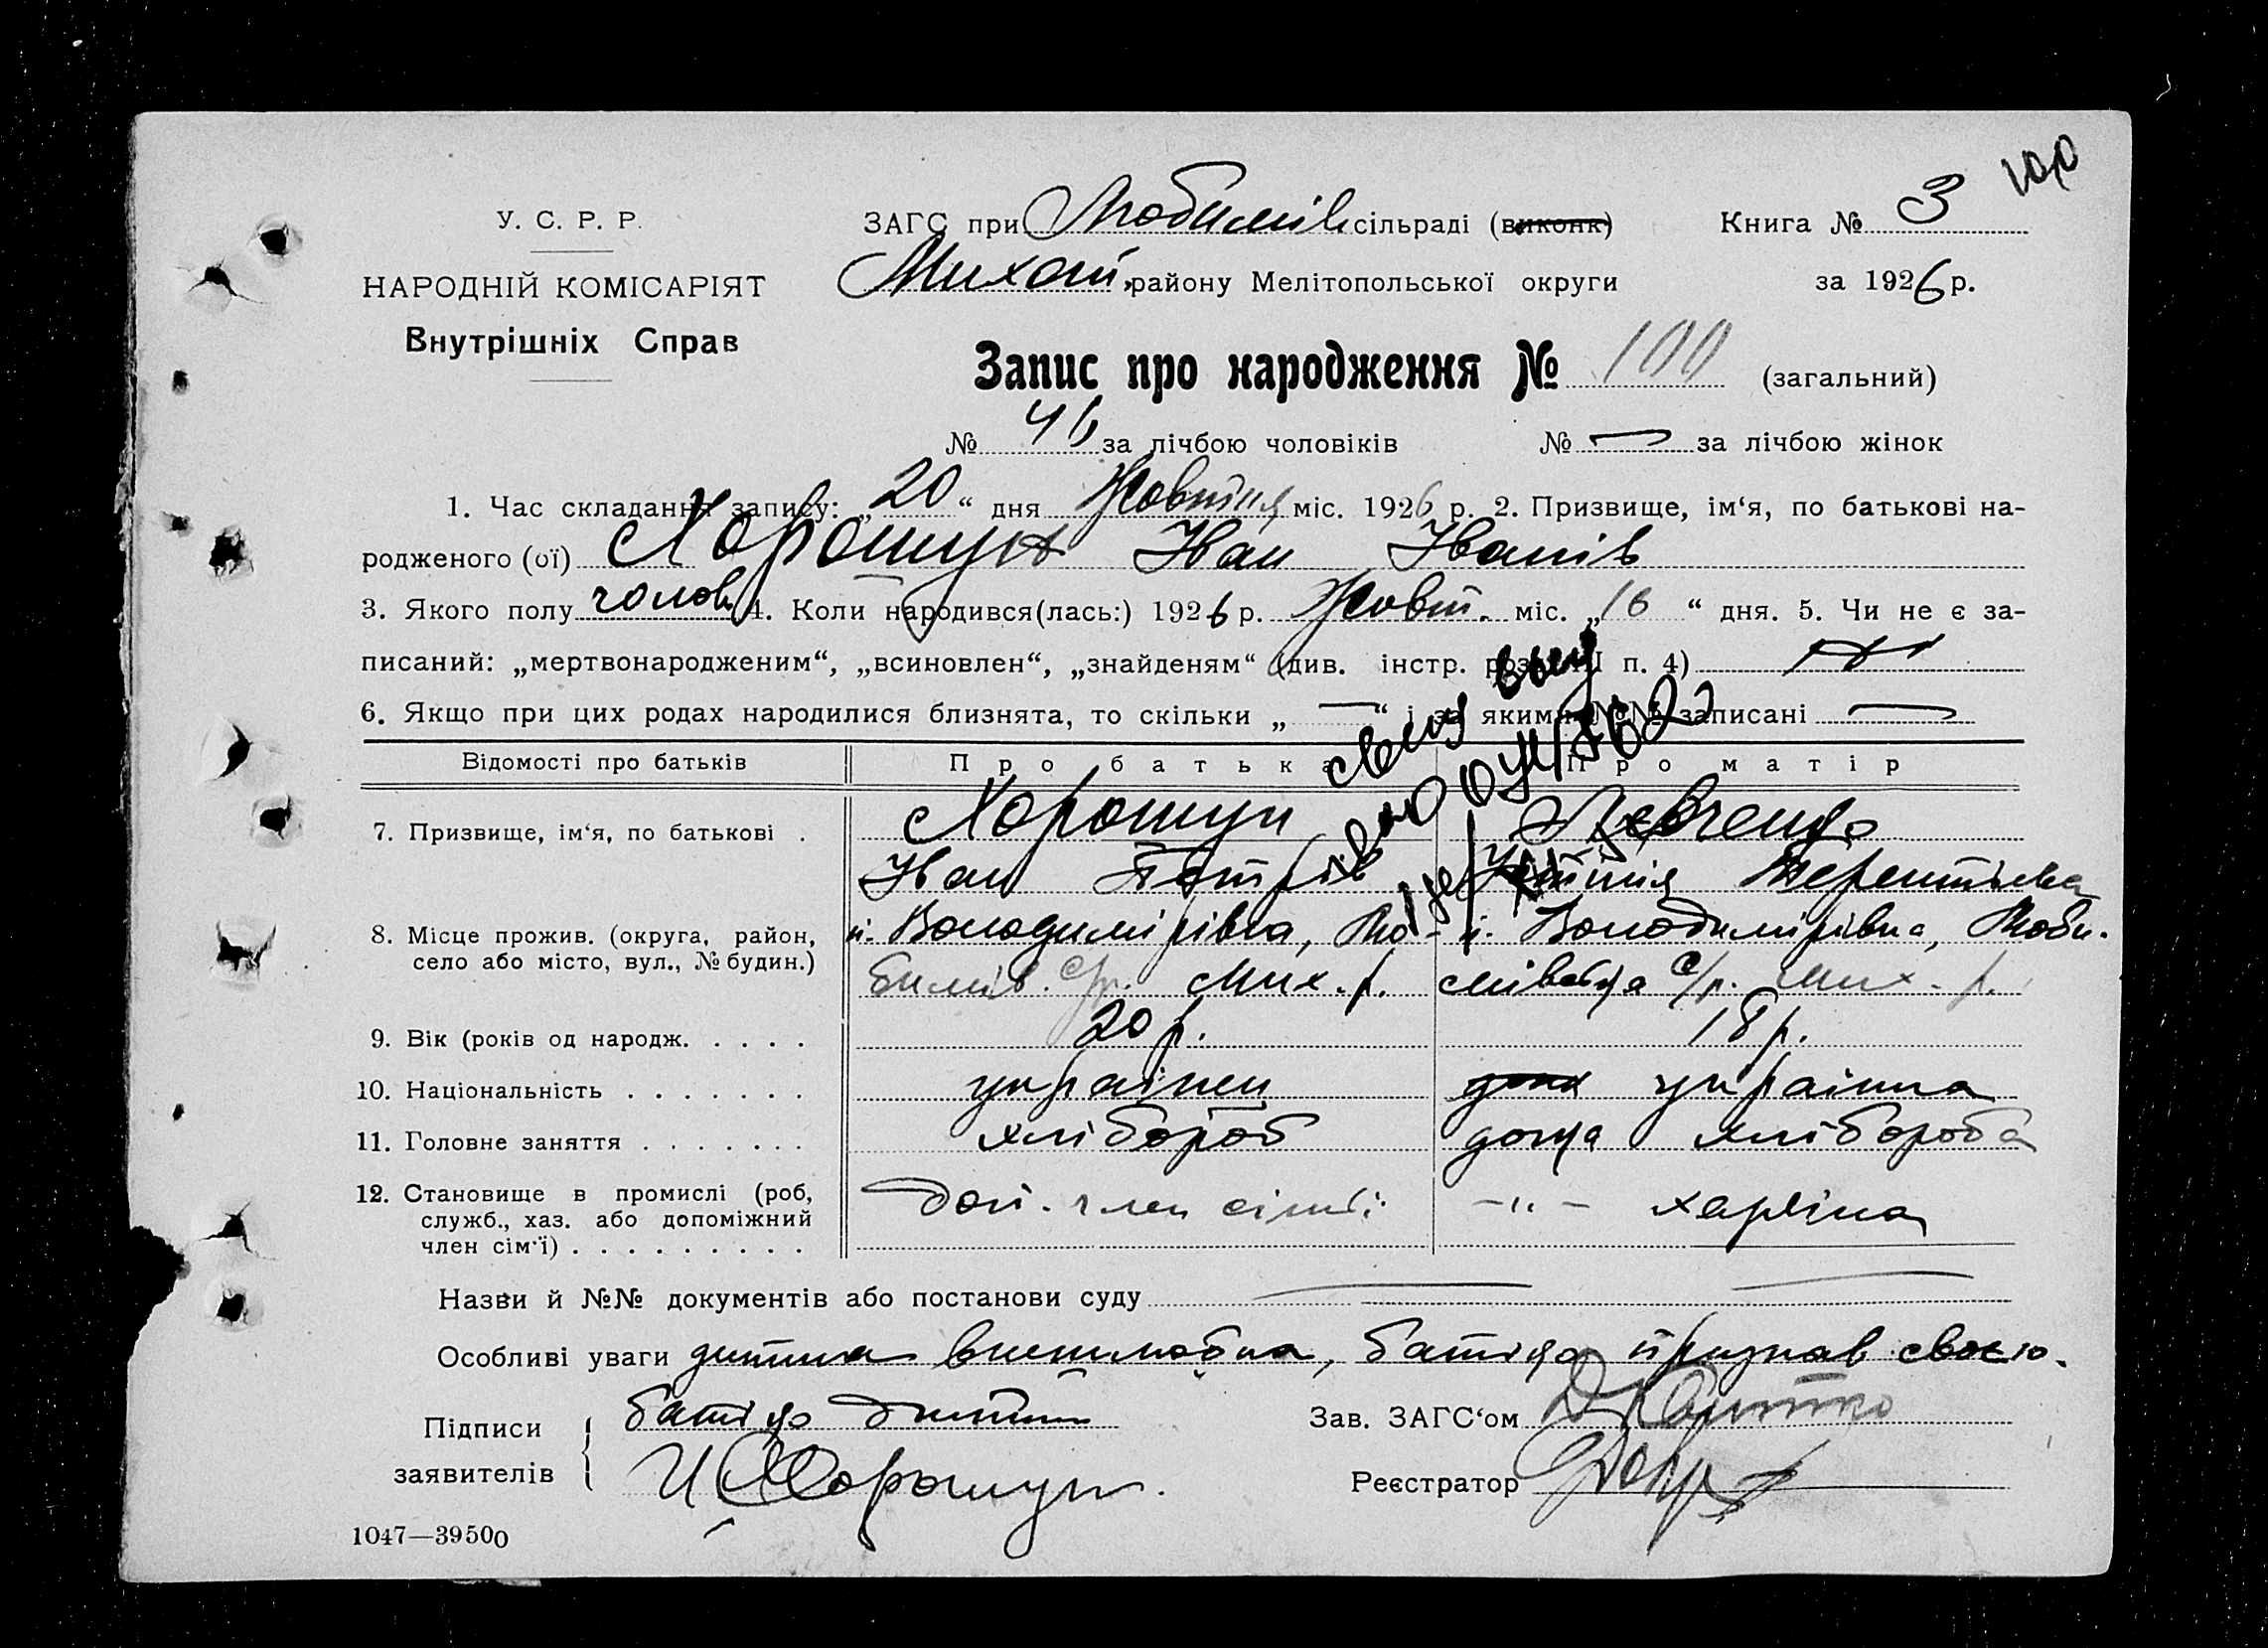 100
У. С. Р. Р. ЗАГС при Любимівс. сільраді (виконк) Книга № 3
НАРОДНІЙ КОМІСАРІЯТ Михайл. району Мелітопольської округи за 1926 р.
Внутрішніх Справ
Запис про народження № 100 (загальний)
№ 46 за лічбою чоловіків № — за лічбою жінок
1. Час складання запису: „20“ дня Жовтня міс. 1926 р. 2. Призвище, ім‘я, по батькові на-
родженого (ої) Хорошун Іван Іванів
3. Якого полу чолов. 4. Коли народився(лась:) 1926 р. Жовт. міс. „16“ дня. 5. Чи не є за-
писаний: „мертвонародженим“, „всиновлен“, „знайденям“ (див. інстр. розд. III п. 4)
6. Якщо при цих родах народилися близнята, то скільки „—“ і за якими №№ записані —
Відомості про батьків Про батька Про матір
7. Призвище, ім‘я, по батькові . Хорошун Левченко
Іван Петрів Терентієва
8. Місце прожив. (округа, район, с. Володимирівка, Лю- с. Володимирівка, Люби-
село або місто, вул., № будин.) бимів. с/р. Мих. р. мівська с/р. Мих. р.
9. Вік (років од народж. . . . . 20 р. 18 р.
10. Національність . . . . . . . українец українка
11. Головне заняття . . . . . . . хлібороб дочка хлібороба
12. Становище в промислі (роб, доп. член сімї -„-
служб., хаз. або допоміжний
член сім‘ї) . . . . . . . . .
Назви й №№ документів або постанови суду
Особливі уваги дитина внешлюбна, батько признав своєю.
Підписи батько дитини Зав. ЗАГС‘ом
заявителів И Хорошун. Реєстратор
1047—39500